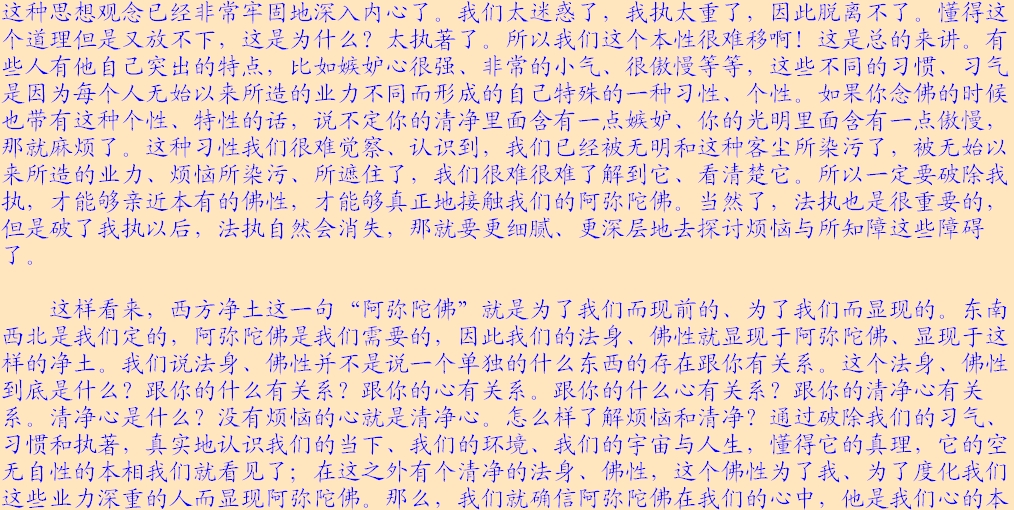 这种思想观念已经非常牢固地深入内心了。我们太迷惑了，我执太重了，因此脱离不了。懂得这
个道理但是又放不下，这是为什么？太执著了。所以我们这个本性很难移啊！这是总的来讲。有
些人有他自己突出的特点，比如嫉妒心很强、非常的小气、很傲慢等等，这些不同的习惯、习气
是因为每个人无始以来所造的业力不同而形成的自己特殊的一种习性、个性。如果你念佛的时候
也带有这种个性、特性的话，说不定你的清净里面含有一点嫉妒、你的光明里面含有一点傲慢，
那就麻烦了。这种习性我们很难觉察、认识到，我们已经被无明和这种客尘所染污了，被无始以
来所造的业力、烦恼所染污、所遮住了，我们很难很难了解到它、看清楚它。所以一定要破除我
执，才能够亲近本有的佛性，才能够真正地接触我们的阿弥陀佛。当然了，法执也是很重要的，
但是破了我执以后，法执自然会消失，那就要更细腻、更深层地去探讨烦恼与所知障这些障碍
了。
这样看来，西方净土这一句“阿弥陀佛”就是为了我们而现前的、为了我们而显现的。东南
西北是我们定的，阿弥陀佛是我们需要的，因此我们的法身、佛性就显现于阿弥陀佛、显现于这
样的净土。我们说法身、佛性并不是说一个单独的什么东西的存在跟你有关系。这个法身、佛性
到底是什么？跟你的什么有关系？跟你的心有关系。跟你的什么心有关系？跟你的清净心有关
系。清净心是什么？没有烦恼的心就是清净心。怎么样了解烦恼和清净？通过破除我们的习气、
习惯和执著，真实地认识我们的当下、我们的环境、我们的宇宙与人生，懂得它的真理，它的空
无自性的本相我们就看见了；在这之外有个清净的法身、佛性，这个佛性为了我、为了度化我们
这些业力深重的人而显现阿弥陀佛。那么，我们就确信阿弥陀佛在我们的心中，他是我们心的本